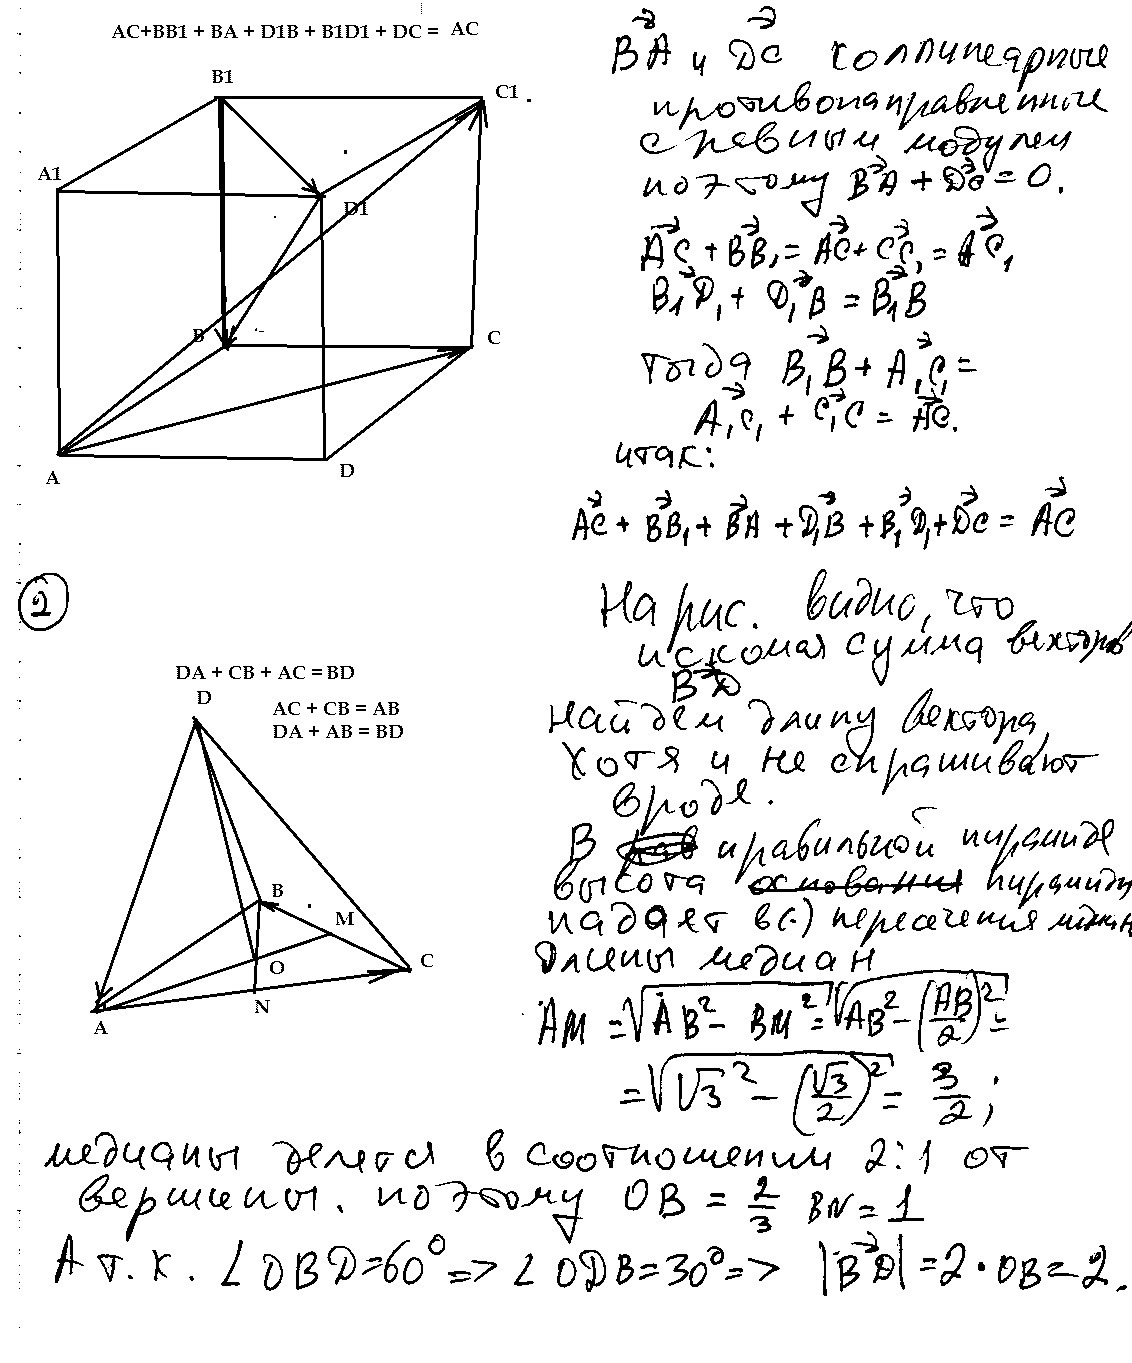 AC+BB1 + BA + D1B + B1D1 + DC = AC
B1
C1
A1
D1
B
C
A
D
BA и DC коллинеарные
противонаправленные
с равным модулем
поэтому BA + DC = 0.
AC + BB₁ = AC + CC₁ = AC₁
B₁D₁ + D₁B = B₁B
тогда B₁B + A₁C₁ =
A₁C₁ + C₁C = AC.
итак:
AC + BB₁ + BA + D₁B + B₁D₁ + DC = AC
2
DA + CB + AC = BD
AC + CB = AB
DA + AB = BD
D
B
M
O
C
N
A
На рис. видно, что
искомая сумма векторов
BD
найдем длину вектора,
хотя и не спрашивают
вроде.
В правильной пирамиде
высота основания пирамиды
падает в (·) пересечения медиан
Длины медиан
AM = √(AB² - BM²) = √(AB² - (AB/2)²) =
= √(√3² - (√3/2)²) = 3/2;
медианы делется в соотношении 2:1 от
вершины. поэтому OB = 2/3 BN = 1
А т.к. ∠OBD=60° => ∠ODB=30° => |BD| = 2·OB = 2.